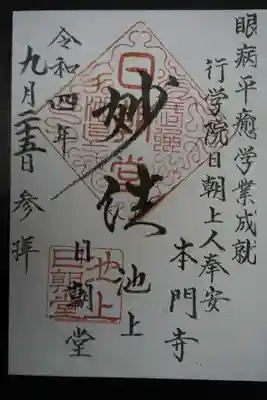 眼病平癒学業成就
行学院日朝上人奉安
本門寺
池上
妙法
日朝堂
令和四年
九月二十五日参拝
池上
日朝堂